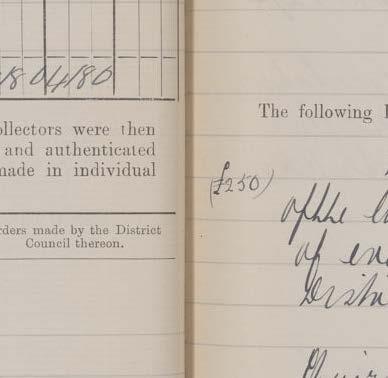 04180
ollectors were then
and authenticated
made in individual
rders made by the District
Council thereon.
The following
(£250)
of the
of
Distri